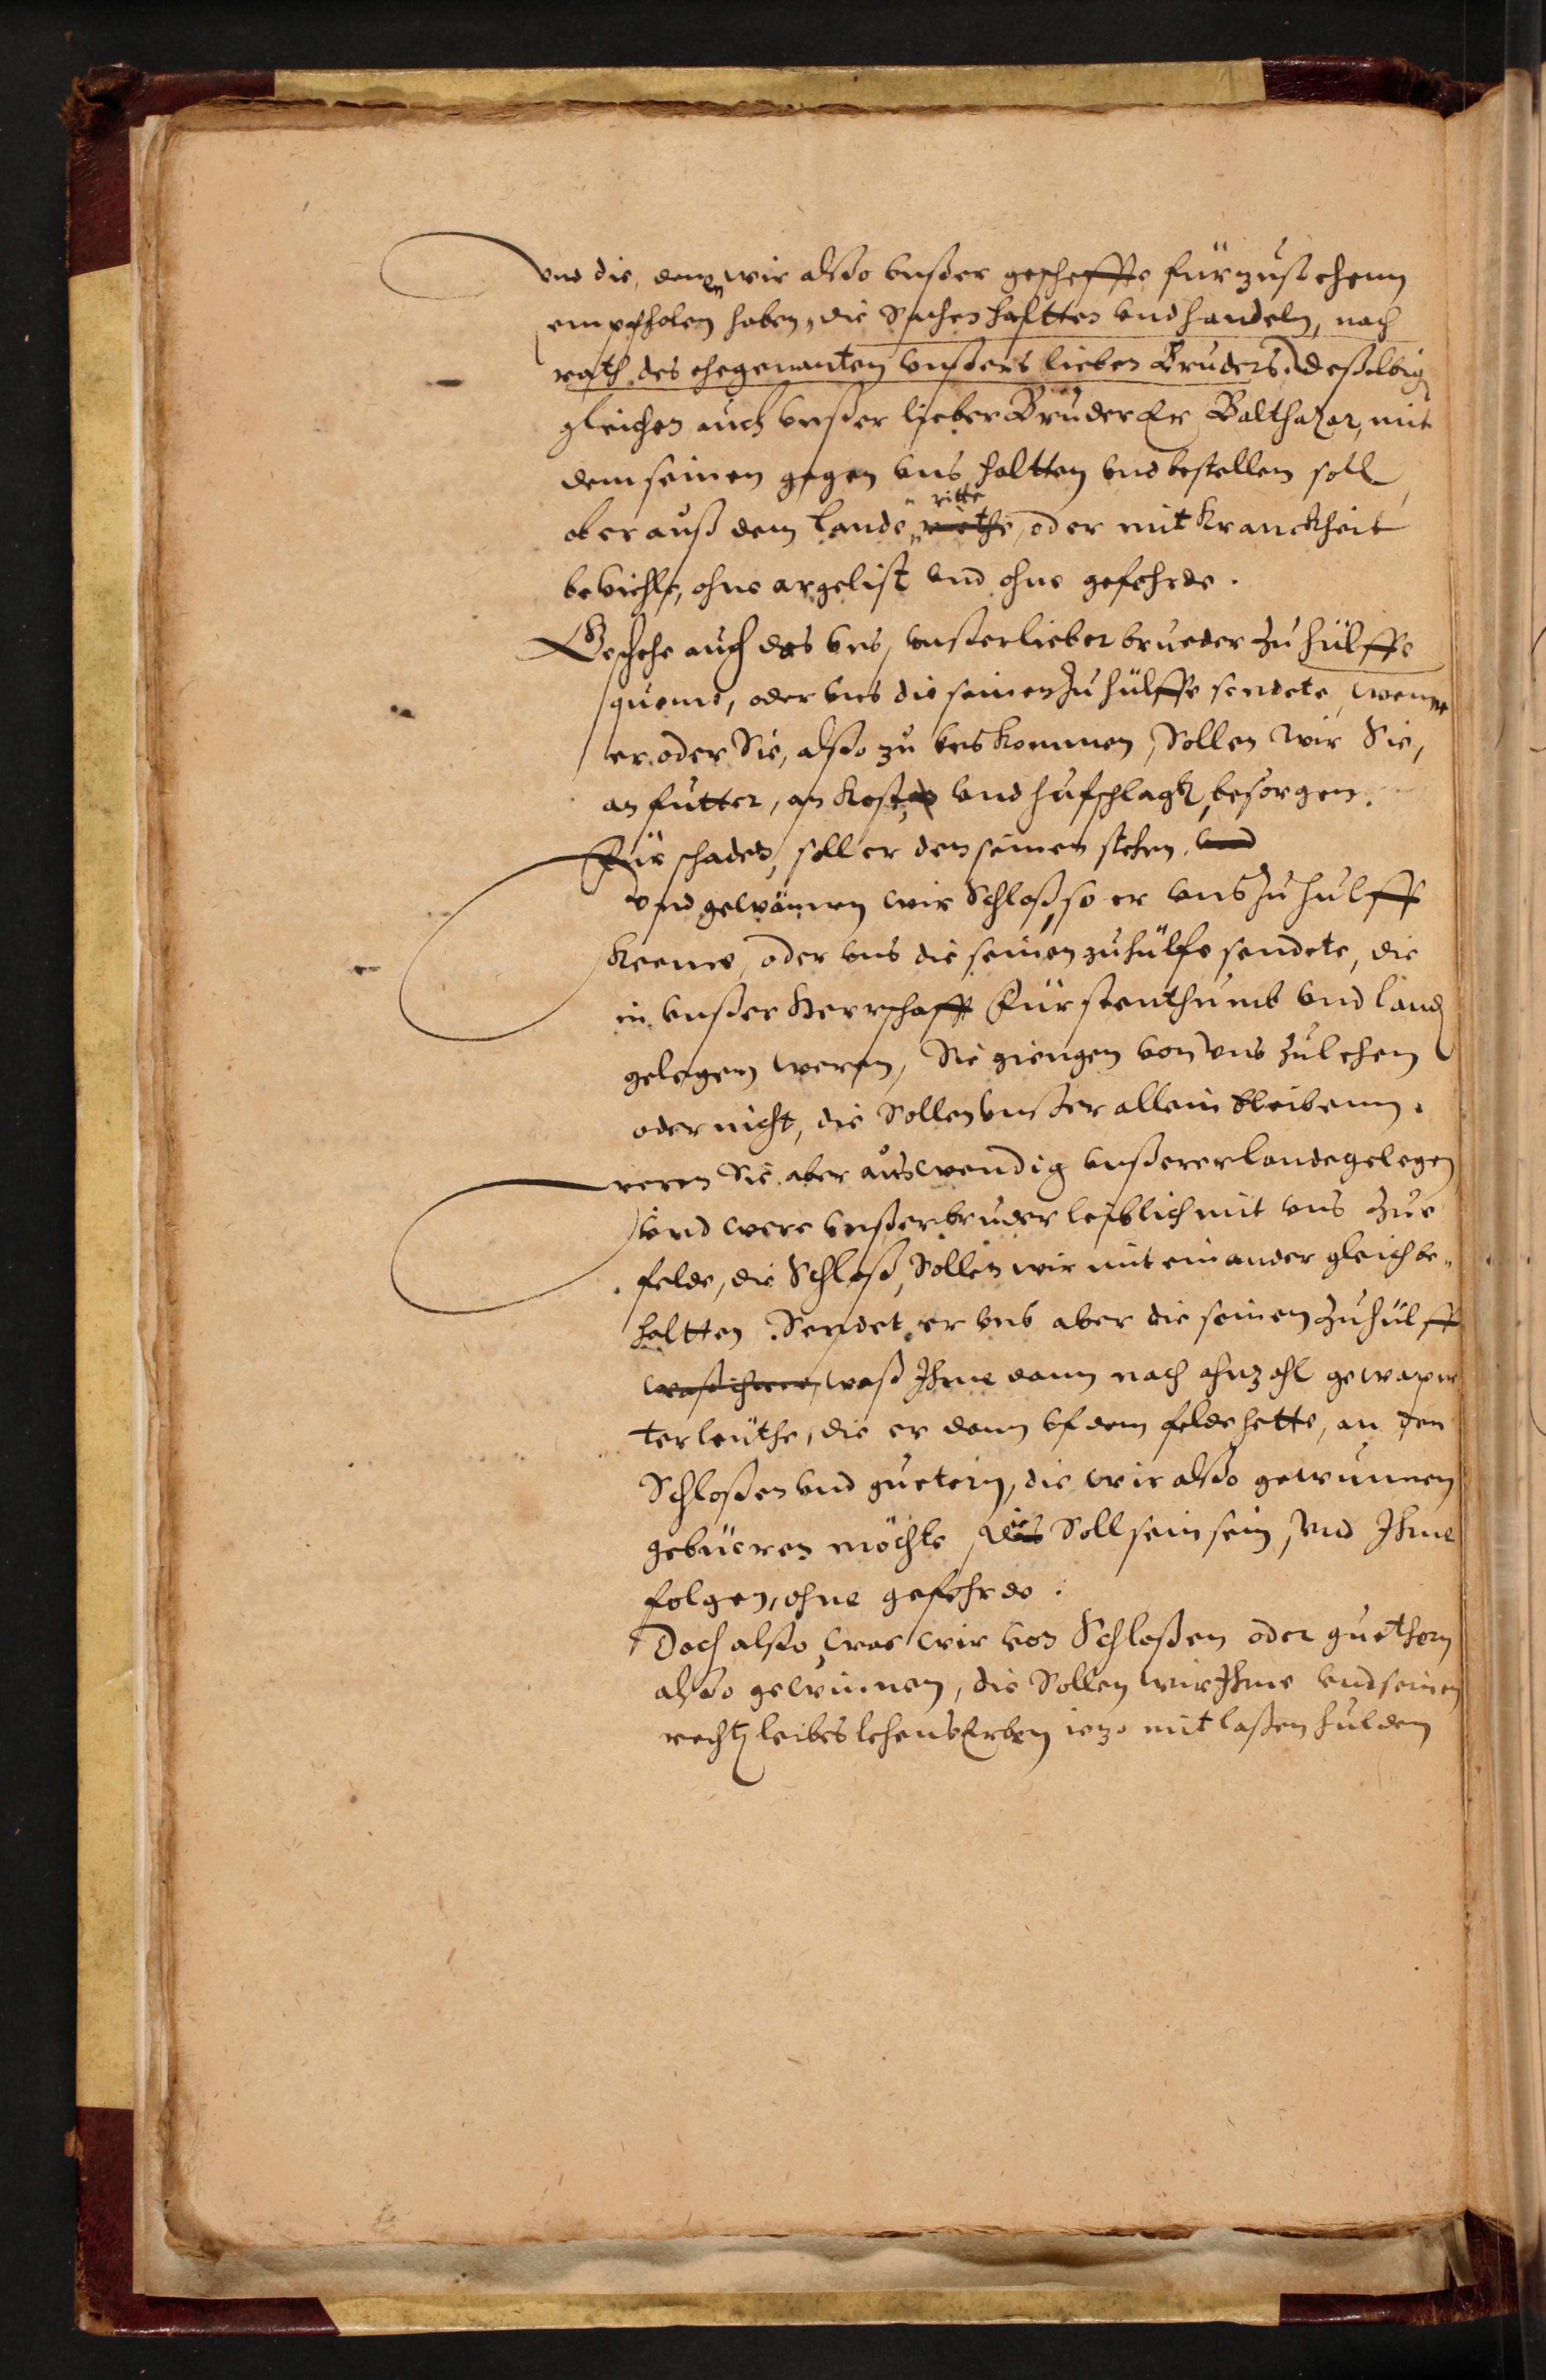 vnd die, denen wir alßo vnßer gescheffte fürzusehenn
empfholen haben, die Sachen haltten vnd handeln, nach
rath des ehegenanten vnßers lieben Bruders, deßelbig
gleichen auch vnßer lieber Bruder Er Balthazar, mit
dem seinen gegen vns haltten vnd bestellen soll,
ob er auß dem lande ritte riethe, oder mit Kranckheit
beviehle, ohne argelist vnd ohne gefehrde.
Geschehe auch das vns, vnßer lieber brueder zu hülffe
queme, oder vns die seinen zu hülffe sendete, wenne
er oder Sie, alßo zu vns kommen, Sollen wir Sie,
an futter, an Kost, vnd hufschlagk, besorgen.
Für schaden, soll er den seinen stehen. vnd
Vnd gewönnen wir Schloß, so er vns zu hülff
Keeme, oder vns die seinen zu hülfe sendete, die
in vnßer Herrschafft Fürstenthumb vnd land
gelegen weren, Sie giengen von vns zu lehen
oder nicht, die Sollen vnßer allein bleibenn.
weren Sie aber auswendig vnßerer lande gelegen
vnd were vnßer bruder leiblich mit vns zue
felde, die Schloß, Sollen wir mit einander gleich be„
haltten. Sendet er vns aber die seinen zu hülff
waß ihme, waß Ihme dann nach ahnzahl gewapn
ter leuthe, die er dann vf dem felde hette, an den
Schloßen vnd guetern, die wir alßo gewunnen
gebüeren möchte, dies Soll sein sein, Vnd Ihme
folgen, ohne gefehrde.
Doch alßo, was wir von Schloßen oder guethern
alßo gewinnen, die Sollen wir Ihme vnd seinen
recht leibes lehens Erben iezo mit laßen hulden